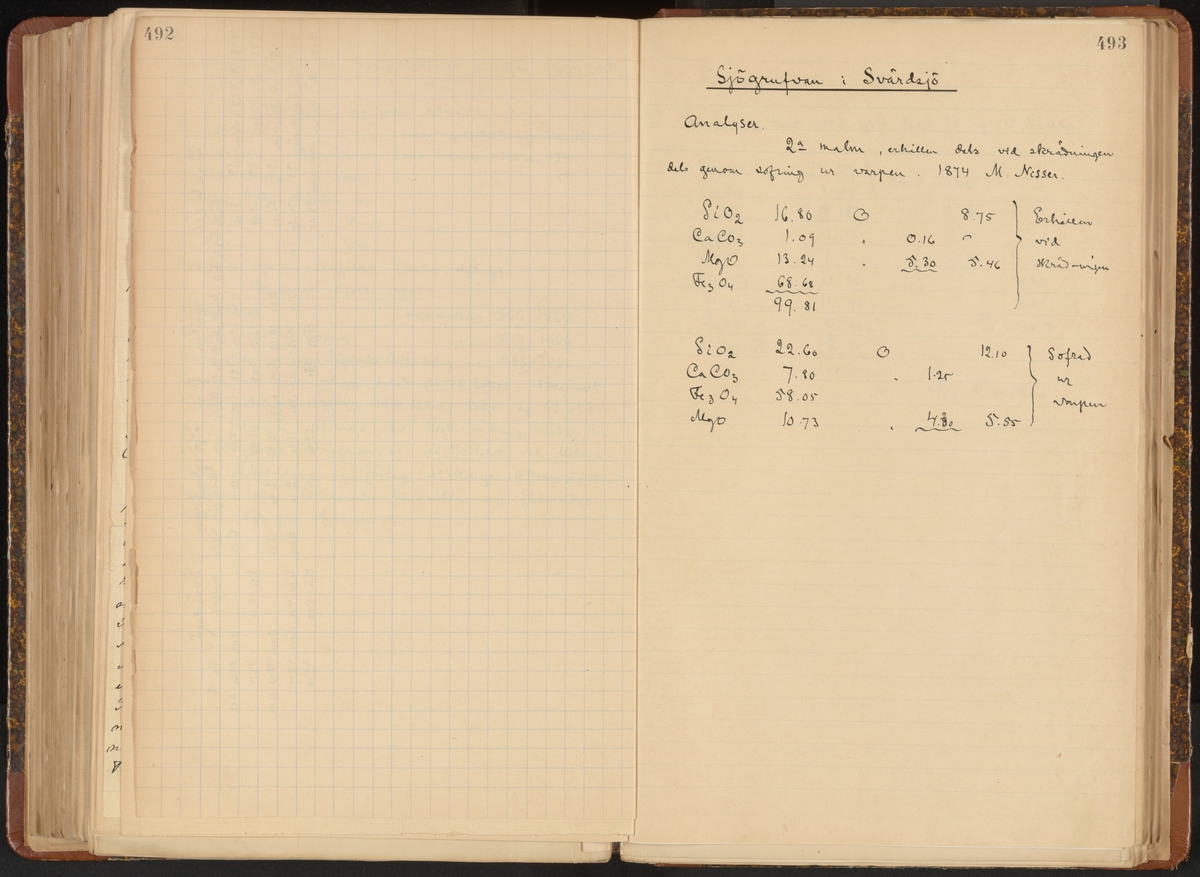 492
493
Sjögrufvan i Svärdsjö
Analyser.
2a malm, erhållen dels vid skrädningen
dels genom sofring ur varpen. 1874 M. Nisser.
SiO2 16.80 O 8.75 Erhållen
CaCO3 1.09 " 0.16 vid
MgO 13.24 " 5.30 5.46 skrädningen
Fe3O4 68.68
99.81
SiO2 22.60 O 12.10 Sofrad
CaCO3 7.80 " 1.25 ur
Fe3O4 58.05 varpen
MgO 10.73 " 4.30 5.55